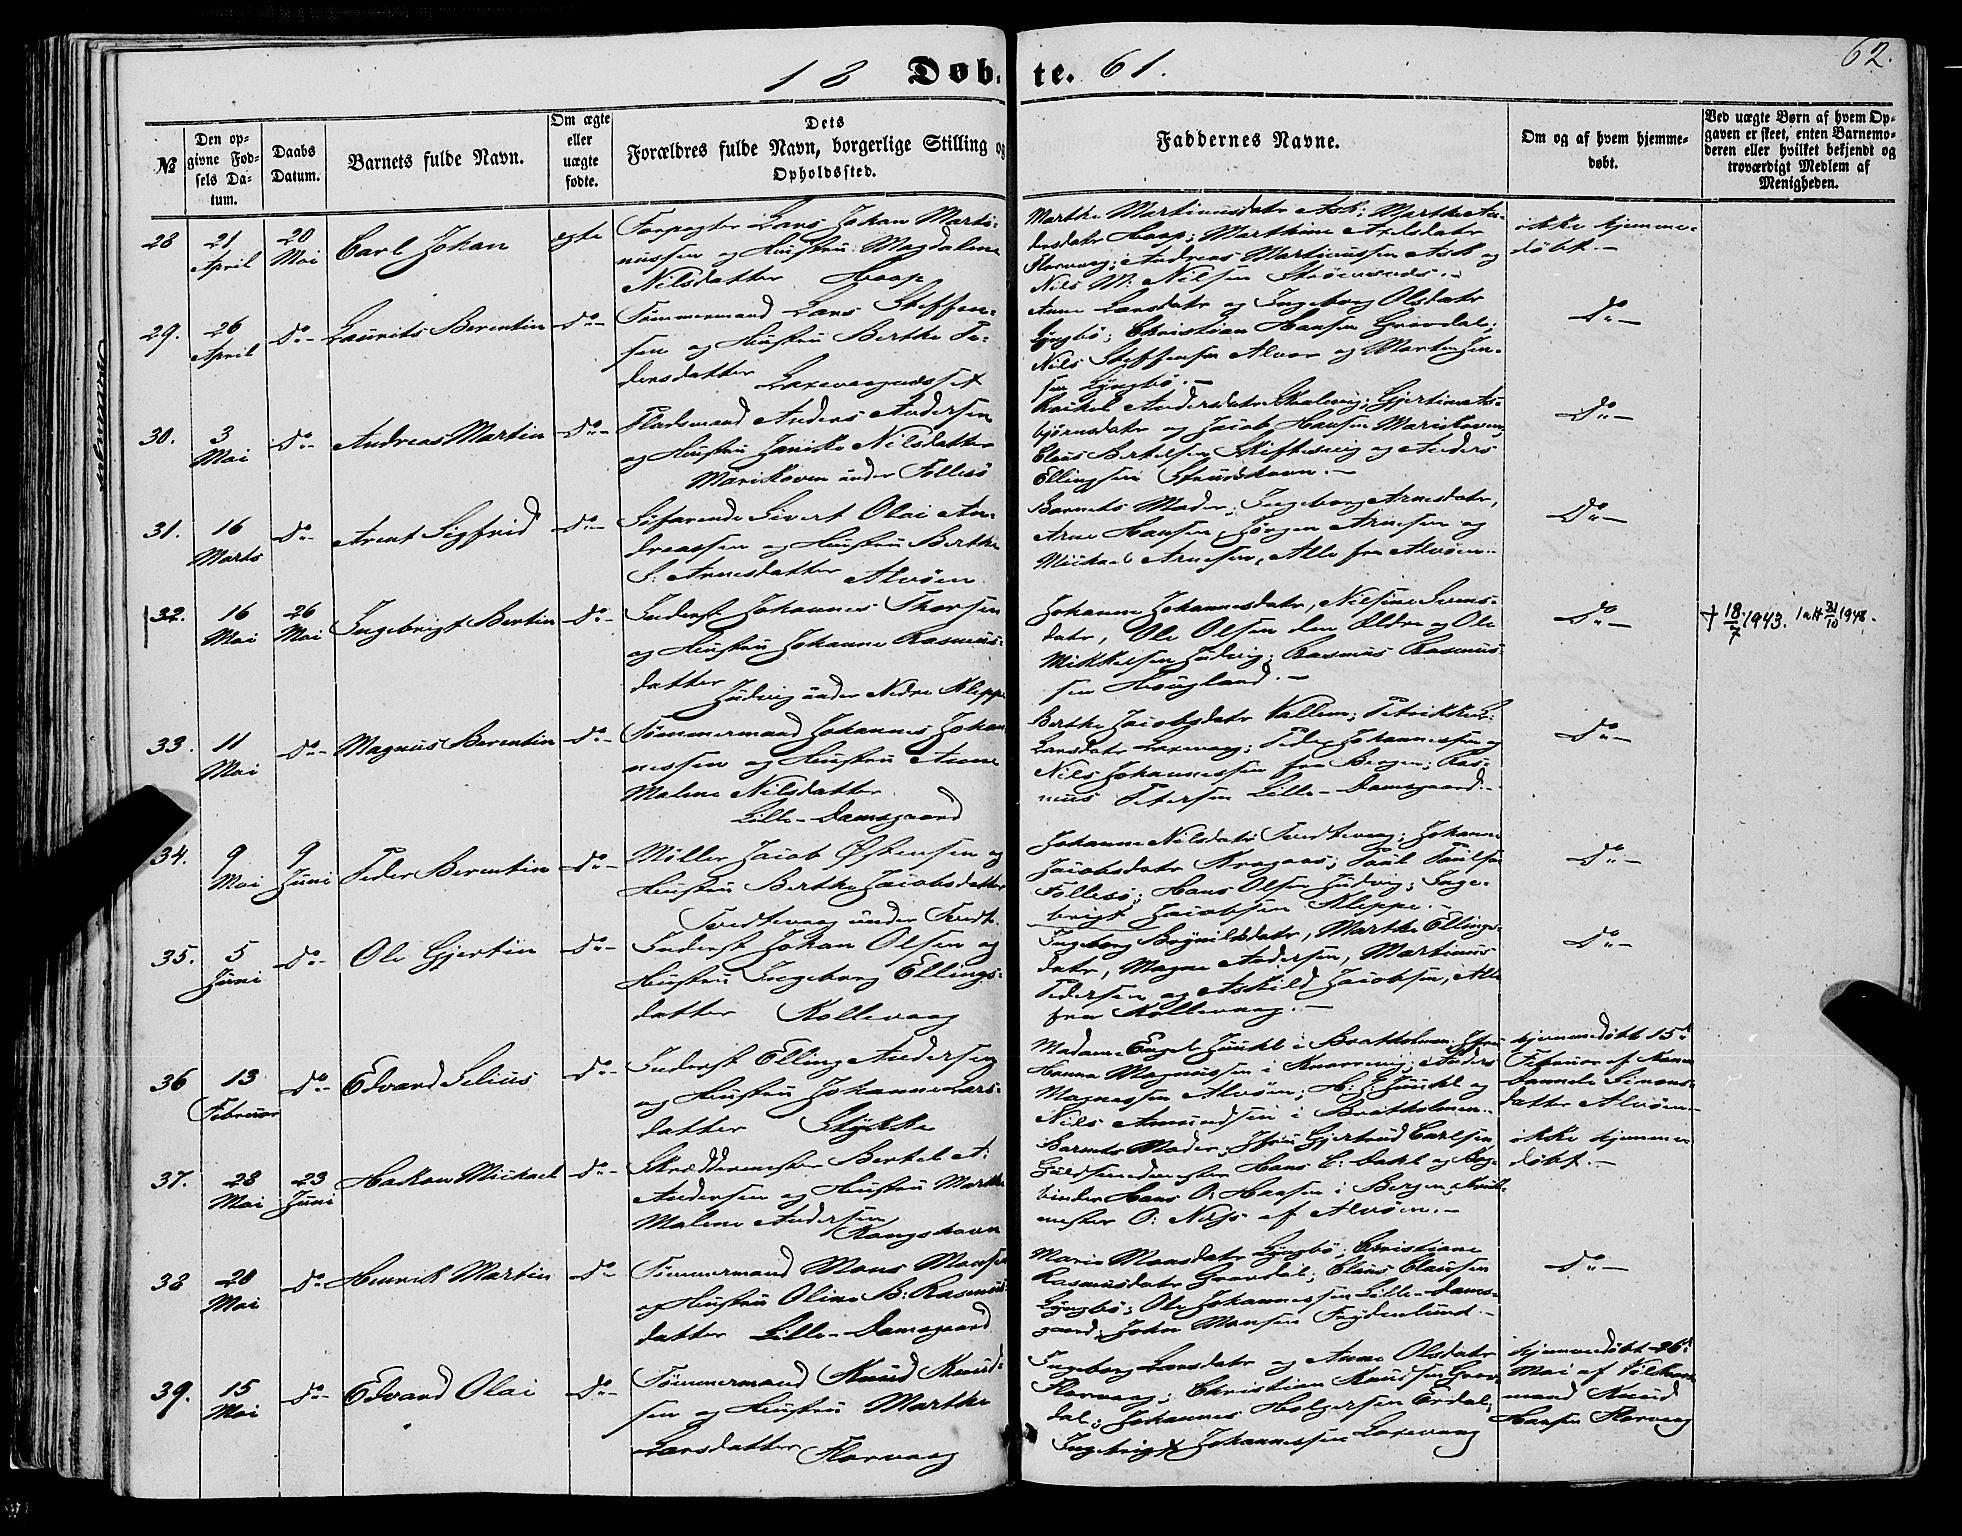 18 Døbte. 61.
62.
№
Den opgivne Fødsels Datum.
Daabs Datum.
Barnets fulde Navn.
Om ægte eller uægte fødte.
Dets Forældres fulde Navn, borgerlige Stilling og Opholdssted.
Faddernes Navne.
Om og af hvem hjemmedøbt.
Ved uægte Børn af hvem Opgaven er skeet, enten Barnemoderen eller hvilket bekjendt og troværdigt Medlem af Menigheden.
28 21 April 20 Mai Carl Johan ægte
Forpagter Lars Johan Marti-
nussen og Hustru Magdalene
Nilsdatter Haap
Marthe Martinusdatr Ask; Marthe An-
dersdatr Haap; Marthine Axelsdatr
Florvaag; Andreas Martinussen Ask og
Nils M. Nilsen
ikke hjemme-
døbt.-
29. 26 April Do- Laurits Berentin Do-
Tømmermand Lars Steffen-
sen og Hustru Berthe Pe-
dersdatter Laxevaagnæsset
Anne Larsdatr og Ingeborg Olsdatr
Lyngbö; Christian Hansen Gravdal;
Nils Steffensen Alvor og Morten Jen-
sen Lyngbö.-
Do-
30. 3 Mai Do- Andreas Martin Do-
Pladsmand Anders Andersen
og Hustru Janike Nilsdatter
Marikoven under Follesö
Raikel Andersdatr Skalevig; Gjertine As-
bjørnsdatr og Jacob Hansen Marikoven;
Claus Bertelsen Skiftesvig og Anders
Ellingsen Strudshavn.-
Do-
31. 16 Marts Do- Arent Sigfrid Do-
Söfarende Sivert Olai An-
dreassen og Hustru Berthe
S. Arnesdatter Alvöen
Barnets Moder; Ingeborg Arnesdatr,
Arne Hansen, Jörgen Arnesen og
Michael Arnesen, Alle fra Alvöen.-
Do-
32. 16 Mai 26 Mai Ingebrigt Bertin Do-
Inderst Johannes Thorsen
og Hustru Johanne Rasmus-
datter Judvig under Nedre Kleppe
Johanne Johannesdatr, Nilsine Ivers-
datr, Ole Olsen den Eldre og Ole
Mikkelsen Judvig; Rasmus Rasmus-
sen Hougland.-
Do-
+ 18/7 1943. 1 att 31/10 1948.
33. 11 Mai Do- Magnus Berentin Do-
Tømmermand Johannes Johan-
nessen og Hustru Anne
Malene Nilsdatter
Lille-Damsgaard
Berthe Jacobsdatr Vallem; Petrikke L.
Larsdatr Laxevaag; Peder Johannessen og
Nils Johannessen fra Bergen; Ras-
mus Petersen Lille-Damsgaard.-
Do-
34. 9 Mai 9 Juni Peder Berentin Do-
Møller Jacob Østensen og
Hustru Berthe Jacobsdatter
Tvedtevaag under Tvedt.
Johanne Nilsdatr Tvedtevaag; Johanne
Jacobsdatr Kragaas; Poul Poulsen
Follesö; Hans Olsen Judvig; Inge-
brigt Jacobsen Kleppe.-
Do-
35. 5 Juni Do- Ole Gjertin Do-
Inderst Johan Olsen og
Hustru Ingeborg Ellings-
datter Kollevaag
Ingeborg Brynildsdatr, Marthe Ellings-
datr, Magne Andersen, Martinus
Pedersen og Askild Jacobsen, Alle
fra Kollevaag.-
Do-
36 13 Februar Do- Edvard Selius Do-
Inderst Elling Andersen
og Hustru Johanne Lars-
datter Stykke
Madame Engel Juuhl i Bratholmen; Jfru
Hanna Magnussen i Knarrevig; Anders
Magnussen Alvöen; H. J. Juuhl og
Nils Amundsen i Bratholmen.-
hjemmedöbt 15de
Februar af
Simons-
datter Alvöen-
37. 28 Mai 23 Juni Hakon Michael Do-
Skræddermester Bertel A.
Andersen og Hustru Marthe
Malene Andersen
Kongshavn
Barnets Moder; Jfru Gjertrud Carlsen;
Guldsmedmester Hans C. Dahl og Bog-
binder Hans O. Hansen i Bergen;
mester O. af Alvöen.-
ikke hjemme-
döbt.-
38 20 Mai Do- Henrik Martin Do-
Tømmermand Mons Monsen
og Hustru Oline B. Rasmus-
datter Lille-Damsgaard
Marie Monsdatr Lyngbö; Christiane
Rasmusdatr Gravdal; Claus Clausen
Lyngbö; Ole Johannessen Lille-Dams-
gaard; John Monsen Frydenlund.-
Do-
39. 15 Mai Do- Edvard Olai Do-
Tømmermand Knud Knud-
sen og Hustru Marthe
Larsdatter Florvaag
Ingeborg Larsdatr og Anne Olsdatr
Florvaag; Christian Knudsen Grav-
dal; Johannes Holgersen Erdal;
Ingebrigt Johannessen Laxevaag
hjemmedöbt 26de
Mai af
mand Knud
Hansen Florvaag